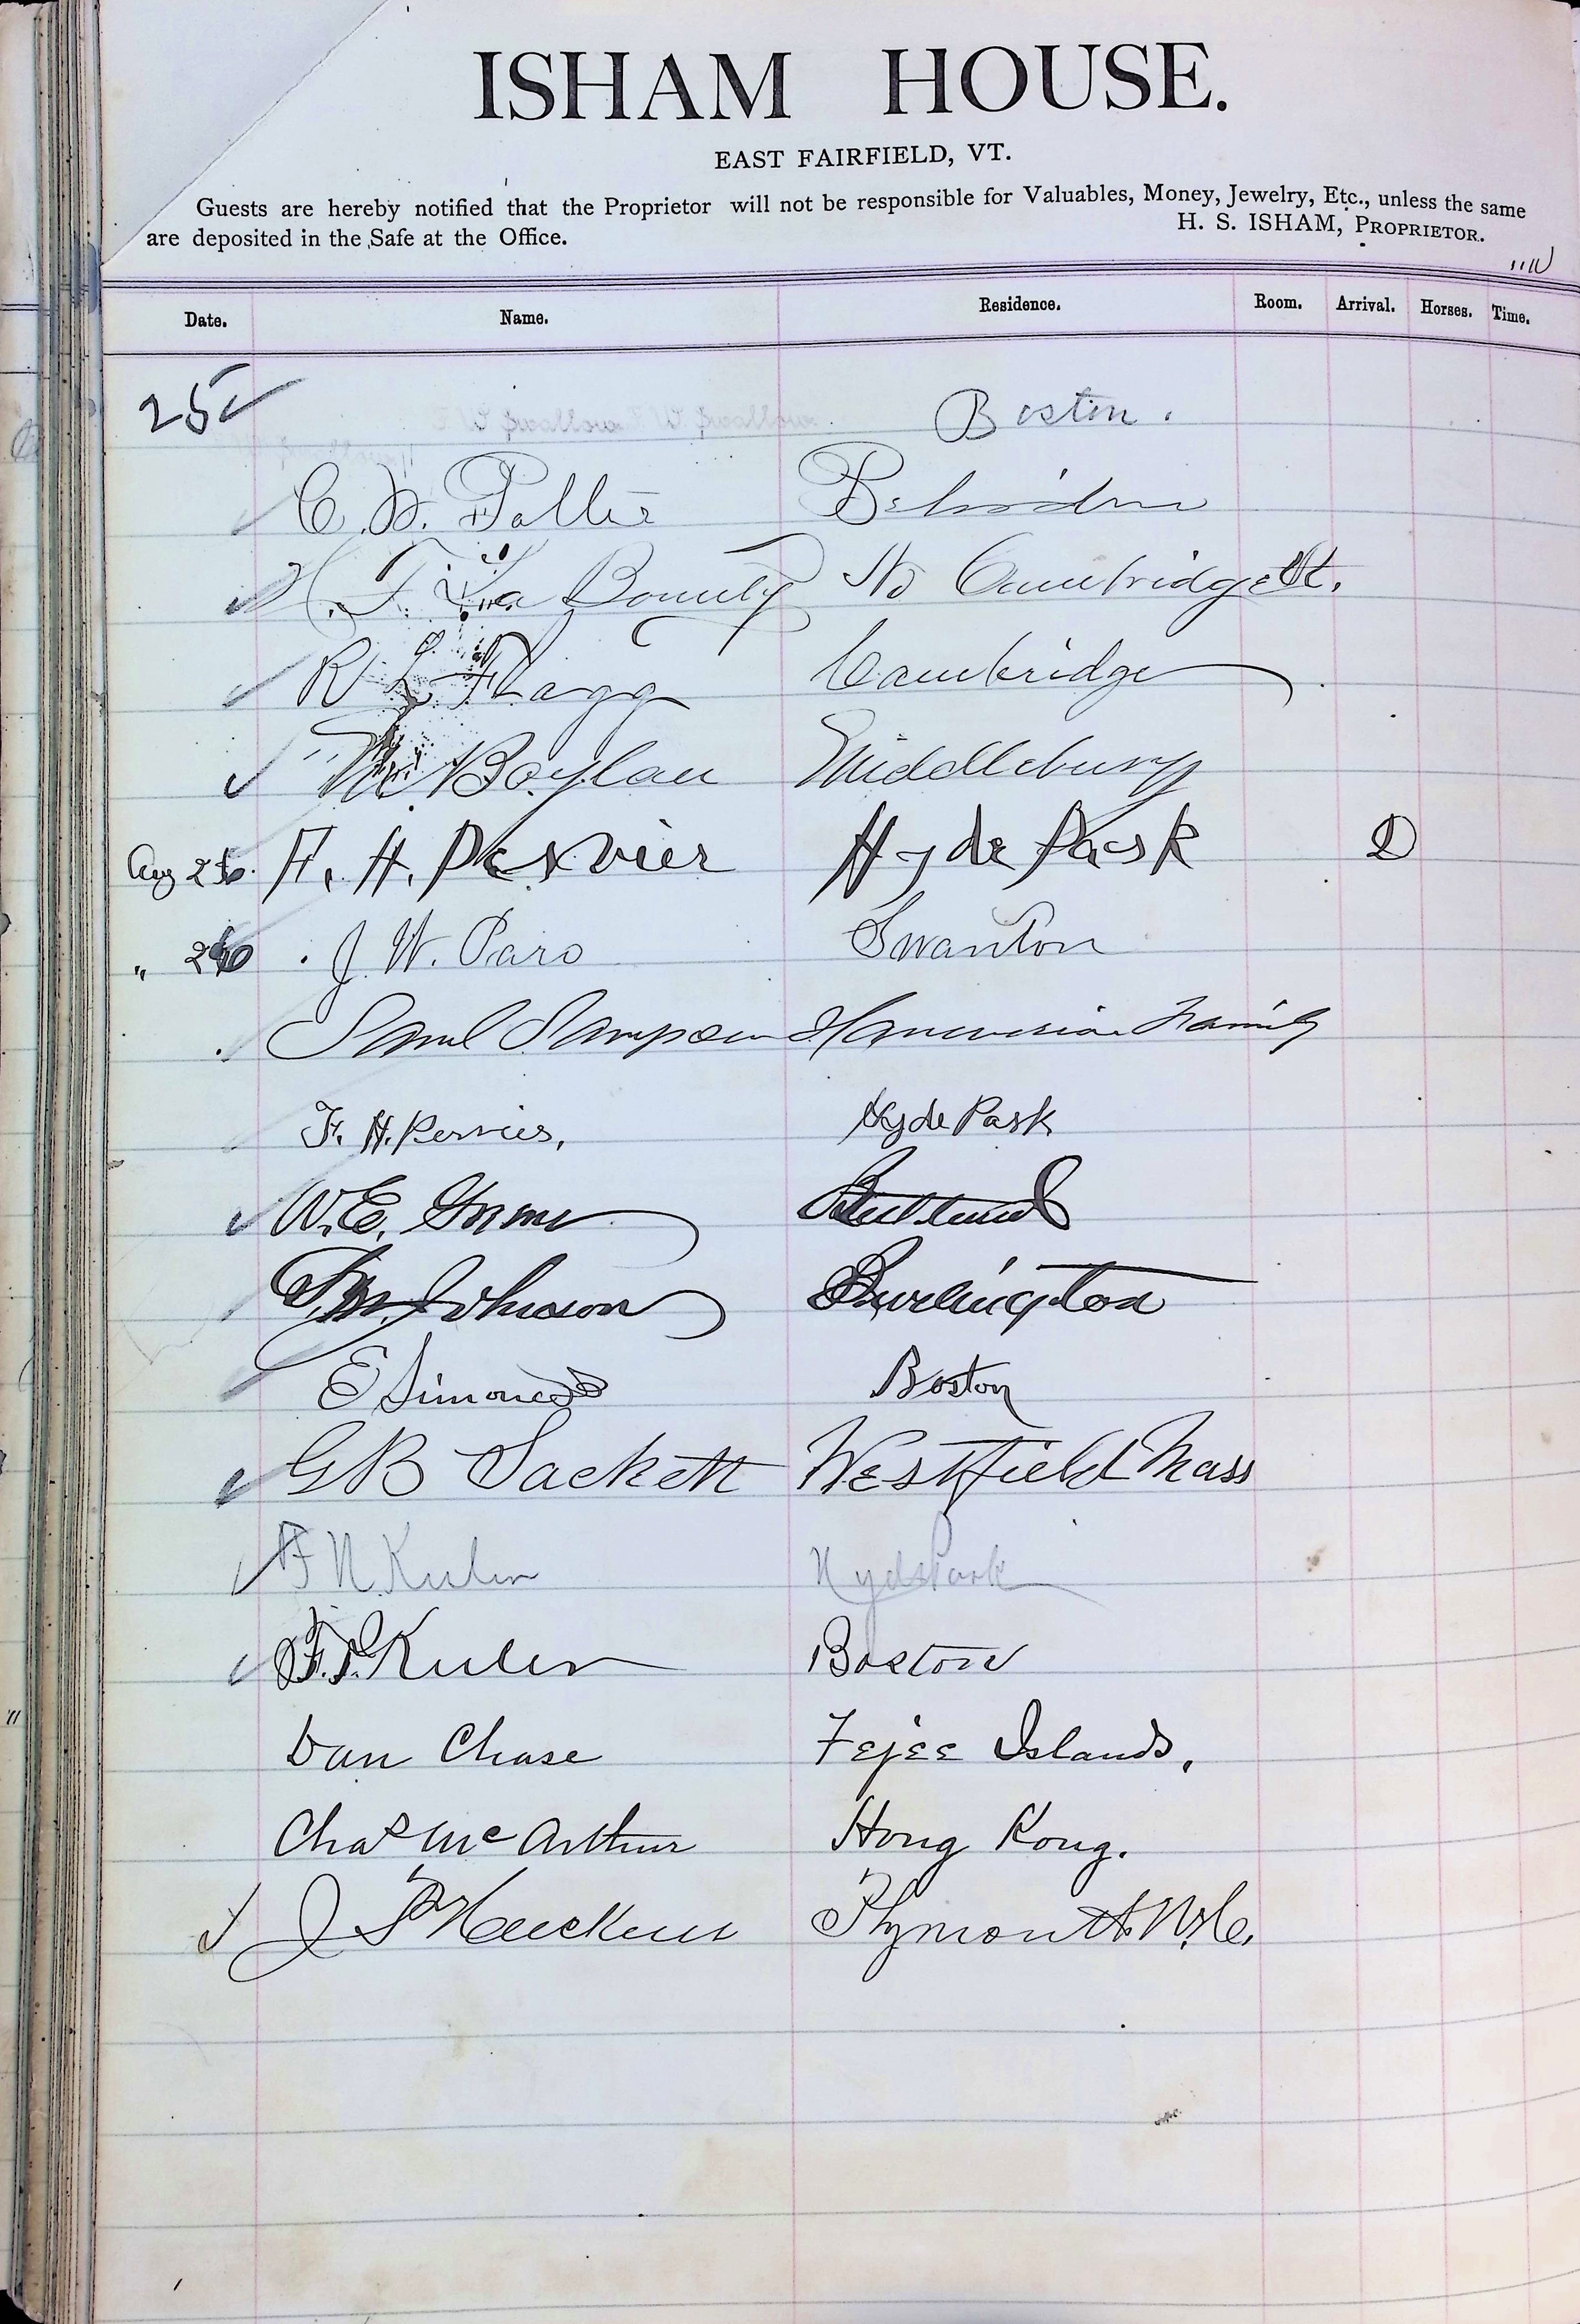 ISHAM HOUSE.
EAST FAIRFIELD, VT.
Guests are hereby notified that the Proprietor will not be responsible for Valuables, Money, Jewelry, Etc., unless the same
are deposited in the Safe at the Office. H. S. ISHAM, PROPRIETOR.
Date. Name. Residence. Room. Arrival. Horses. Time.
25 Boston.
C. W. Potter Belvidere
H. F. La Bounty No Cambridge Vt.
R L Flagg Cambridge
Boylan Middlebury
Aug 26. F. H. Pervier Hyde Park D
" 26 J. W. Paro Swanton
Saml Sampson Family
F. H. Pervier, Hyde Park
W. E. Rutland
Johnson Burlington
E Simonds Boston
G B Sackett Westfield Mass
F N Hyde Park
F. Boston
Dan Chase Fejee Islands,
Chas McArthur Hong Kong.
J Plymouth N.C.